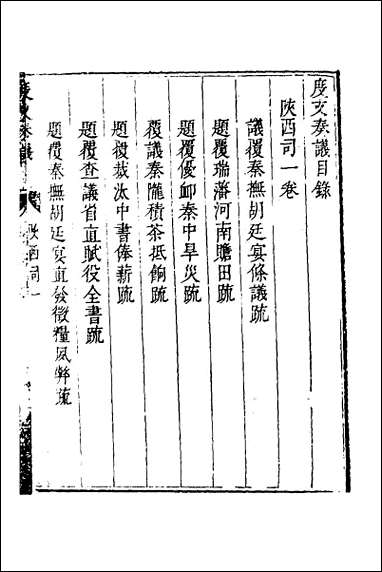 度支奏議目錄
陝西司一卷
議覆秦撫胡廷宴條議疏
題覆瑞藩河南贍田疏
題覆優卹秦中旱災疏
覆議秦隴積茶抵餉疏
題覆裁汰中書俸薪疏
題覆查議省直賦役全書疏
題覆秦撫胡廷宴直發徵糧夙弊疏
度支奏議
陝西司一